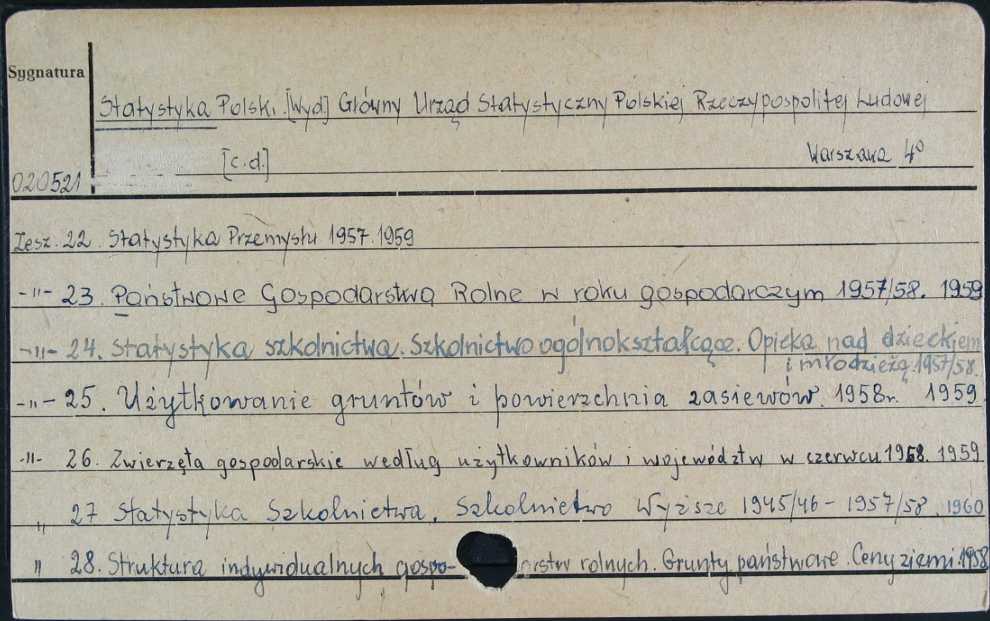 Sygnatura
Statystyka Polski. [Wyd] Główny Urząd Statystyczny Polskiej Rzeczypospolitej Ludowej
[c.d.] Warszawa 4°
020521
Zesz. 22. Statystyka Przemysłu 1957. 1959
-"- 23. Państwowe Gospodarstwa Rolne w roku gospodarczym 1957/58. 1959
-"- 24. Statystyka szkolnictwa. Szkolnictwo ogólnokształcące. Opieka nad dzieckiem
i młodzieżą. 1957/58.
-"- 25. Użytkowanie gruntów i powierzchnia zasiewów. 1958r. 1959
-"- 26. Zwierzęta gospodarskie według użytkowników i województw w czerwcu 1958. 1959
" 27 Statystyka Szkolnictwa. Szkolnictwo Wyższe 1945/46 - 1957/58. 1960
" 28. Struktura indywidualnych gospo- arstw rolnych. Grunty państwowe. Ceny ziemi. 1958